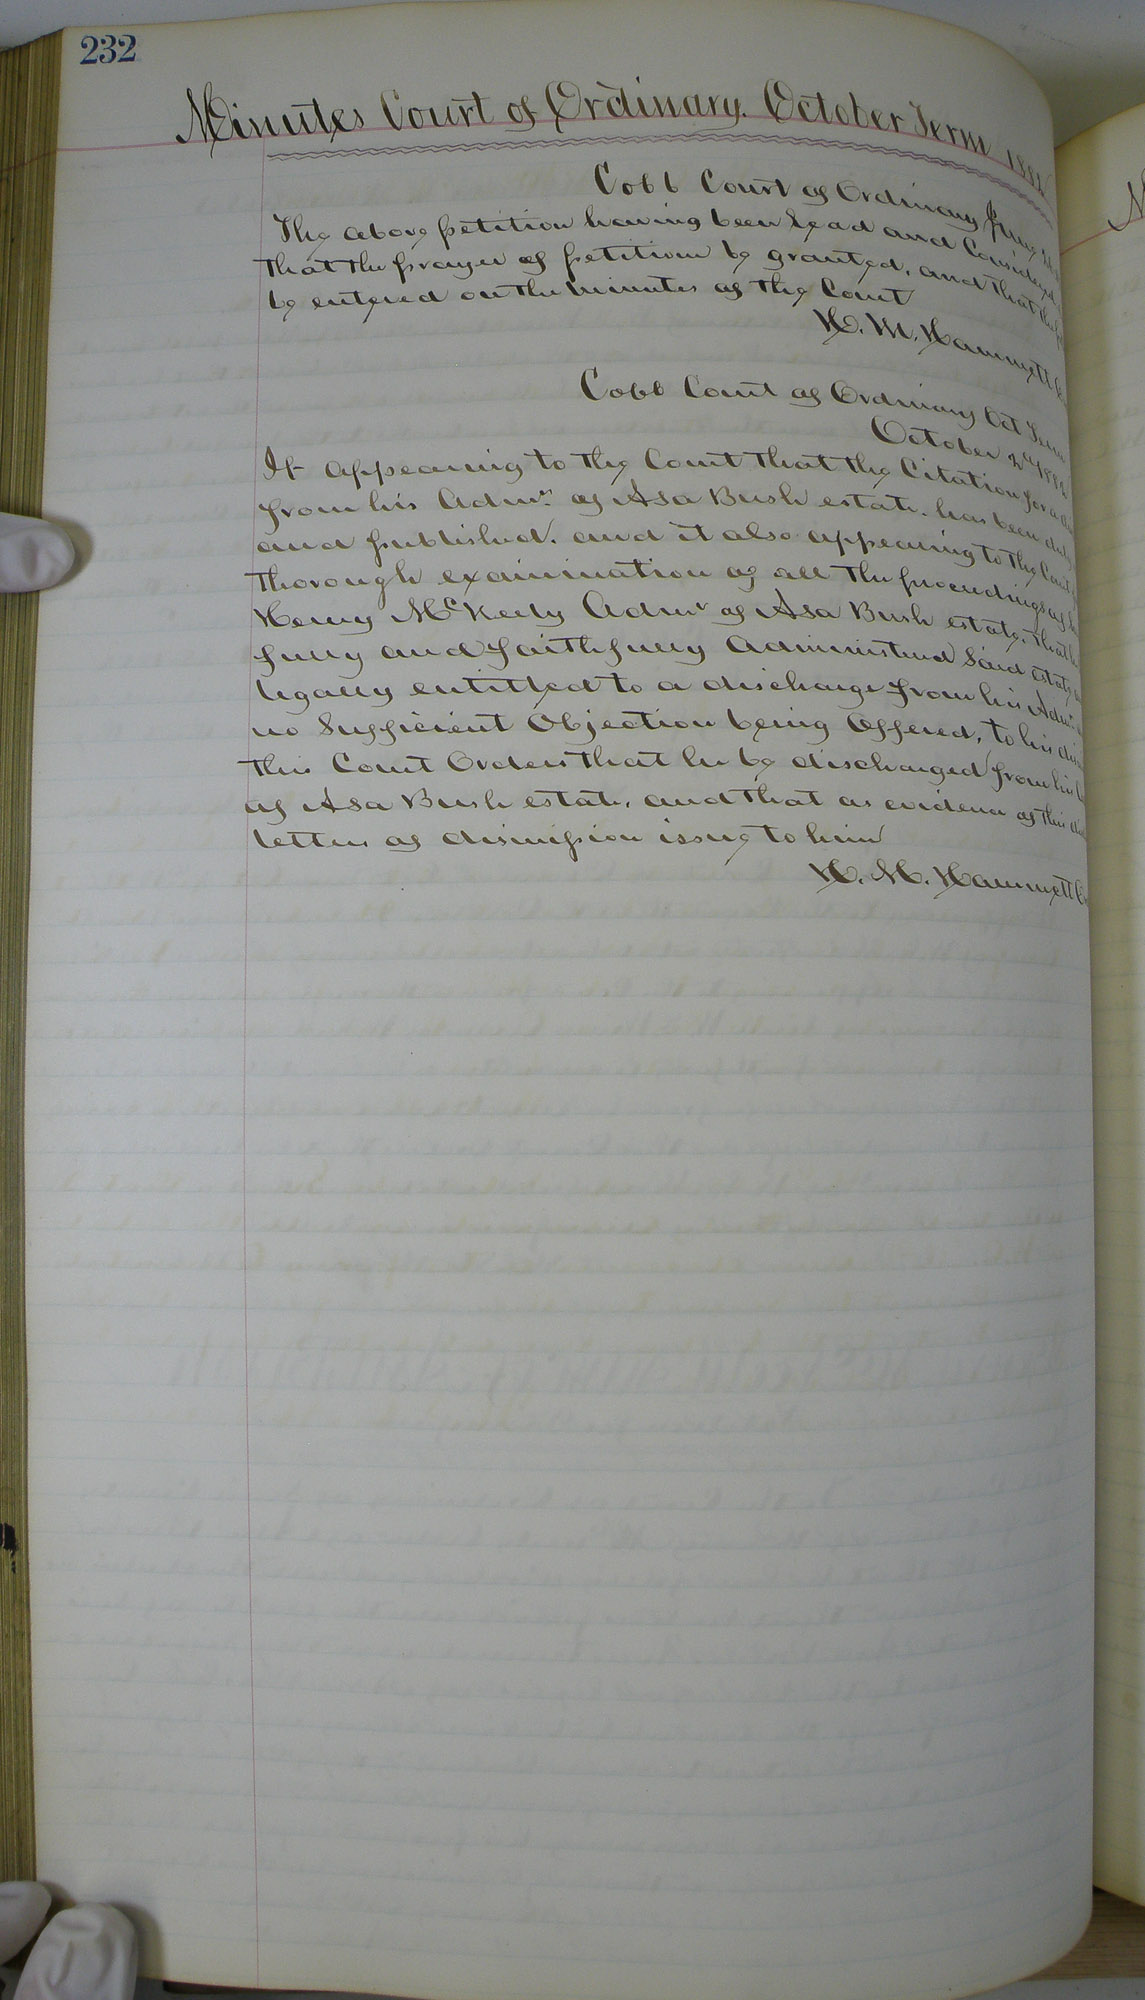 232
Minutes Court of Ordinary. October Term
Cobb Court of Ordinary
The above petition having been read and Considered
that the prayer of petition be granted, and that the
be entered on the minutes of the Court
H. M. Hammett
Cobb Court of Ordinary Oct Term
October 2
It appearing to the Court that the Citation for
from his Admr. of Asa Bush estate. has been duly
and published. and it also appearing to the Court
thorough examination of all the proceedings of
Henry McKeely Admr of Asa Bush estate, that
fully and faithfully Administered Said estate
legally entitled to a discharge from his Admr.
no Sufficient Objection being Offered, to his
this Court Orders that he be discharged from his
of Asa Bush estate, and that as evidence of this
letters of dismission issue to him
H. M. Hammett